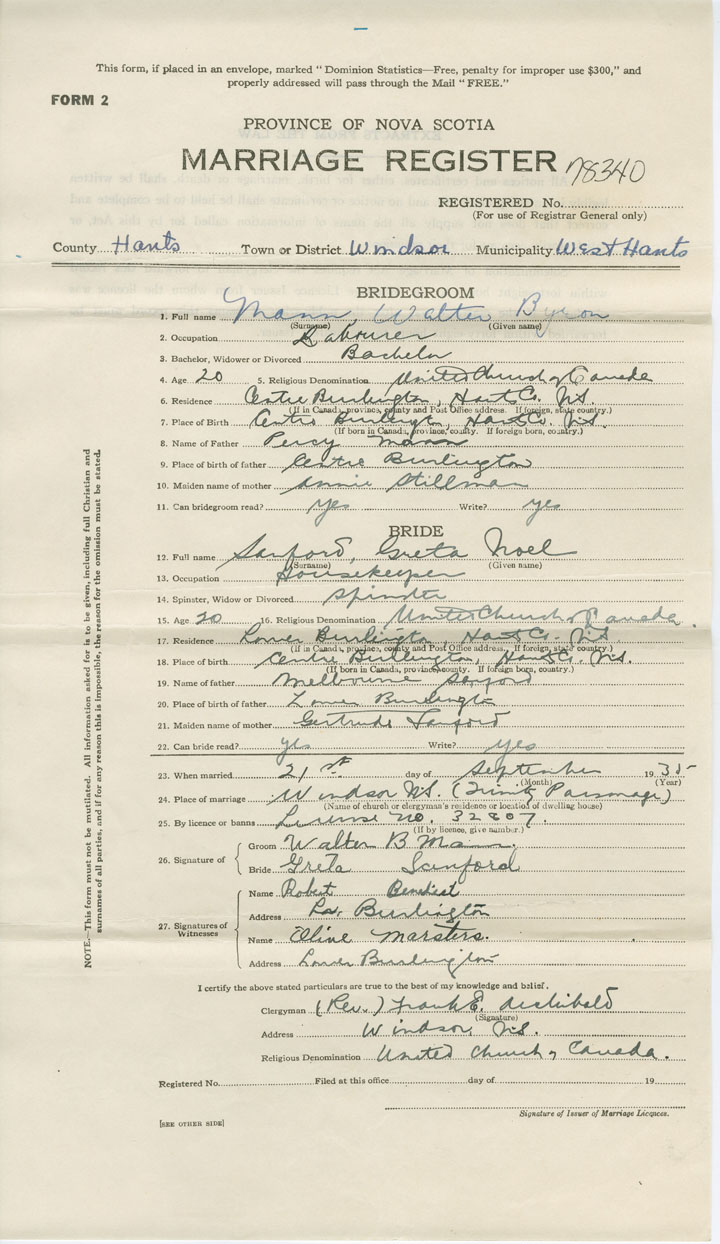 This form, if placed in an envelope, marked "Dominion Statistics—Free, penalty for improper use $300," and
properly addressed will pass through the Mail "FREE."
FORM 2
PROVINCE OF NOVA SCOTIA
MARRIAGE REGISTER 78340
REGISTERED No.
(For use of Registrar General only)
County Hants Town or District Windsor Municipality West Hants
BRIDEGROOM
1. Full name Mann, Walter Byron
(Surname) (Given name)
2. Occupation Labourer
3. Bachelor, Widower or Divorced Bachelor
4. Age 20 5. Religious Denomination United Church of Canada
6. Residence Centre Burlington, Hants Co. N.S.
(If in Canada, province, county and Post Office address. If foreign, state country.)
7. Place of Birth Centre Burlington, Hants Co. N.S.
(If born in Canada, province, county. If foreign born, country.)
8. Name of Father Percy Mann
9. Place of birth of father Centre Burlington
10. Maiden name of mother Annie Stillman
11. Can bridegroom read? yes Write? yes
BRIDE
12. Full name Sanford, Greta Noel
(Surname) (Given name)
13. Occupation Housekeeper
14. Spinster, Widow or Divorced Spinster
15. Age 20 16. Religious Denomination United Church of Canada.
17. Residence Lower Burlington, Hants Co. N.S.
(If in Canada, province, county and Post Office address. If foreign, state country.)
18. Place of birth Centre Burlington, Hants Co. N.S.
(If born in Canada, province, county. If foreign born, country.)
19. Name of father Melbourne Sanford
20. Place of birth of father Lower Burlington
21. Maiden name of mother Gertrude Sanford
22. Can bride read? yes Write? yes
23. When married 21st day of September 1935
(Month) (Year)
24. Place of marriage Windsor N.S. (Trinity Parsonage)
(Name of church or clergyman's residence or location of dwelling house)
25. By licence or banns License no. 32807.
(If by licence, give number.)
26. Signature of
Groom Walter B Mann
Bride Greta Sanford
27. Signatures of Witnesses
Name Robert
Address Lr. Burlington
Name Oline Marsters.
Address Lower Burlington
I certify the above stated particulars are true to the best of my knowledge and belief.
Clergyman (Rev.) Frank E. Archibald
(Signature)
Address Windsor, N.S.
Religious Denomination United Church of Canada.
Registered No. Filed at this office day of 19
Signature of Issuer of Marriage Licences.
[SEE OTHER SIDE]
NOTE.—This form must not be mutilated. All information asked for is to be given, including full Christian and
surnames of all parties, and if for any reason this is impossible, the reason for the omission must be stated.